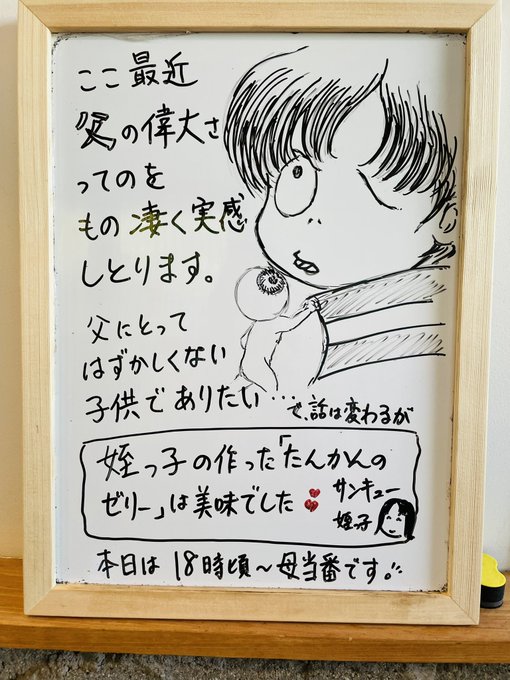 ここ最近
父の偉大さ
ってのを
もの凄く実感
しとります。
父にとって
はずかしくない
子供でありたい…
で、話は変わるが
姪っ子の作った「たんかんの
ゼリー」は美味でした
サンキュー
姪子
本日は18時頃～母当番です。